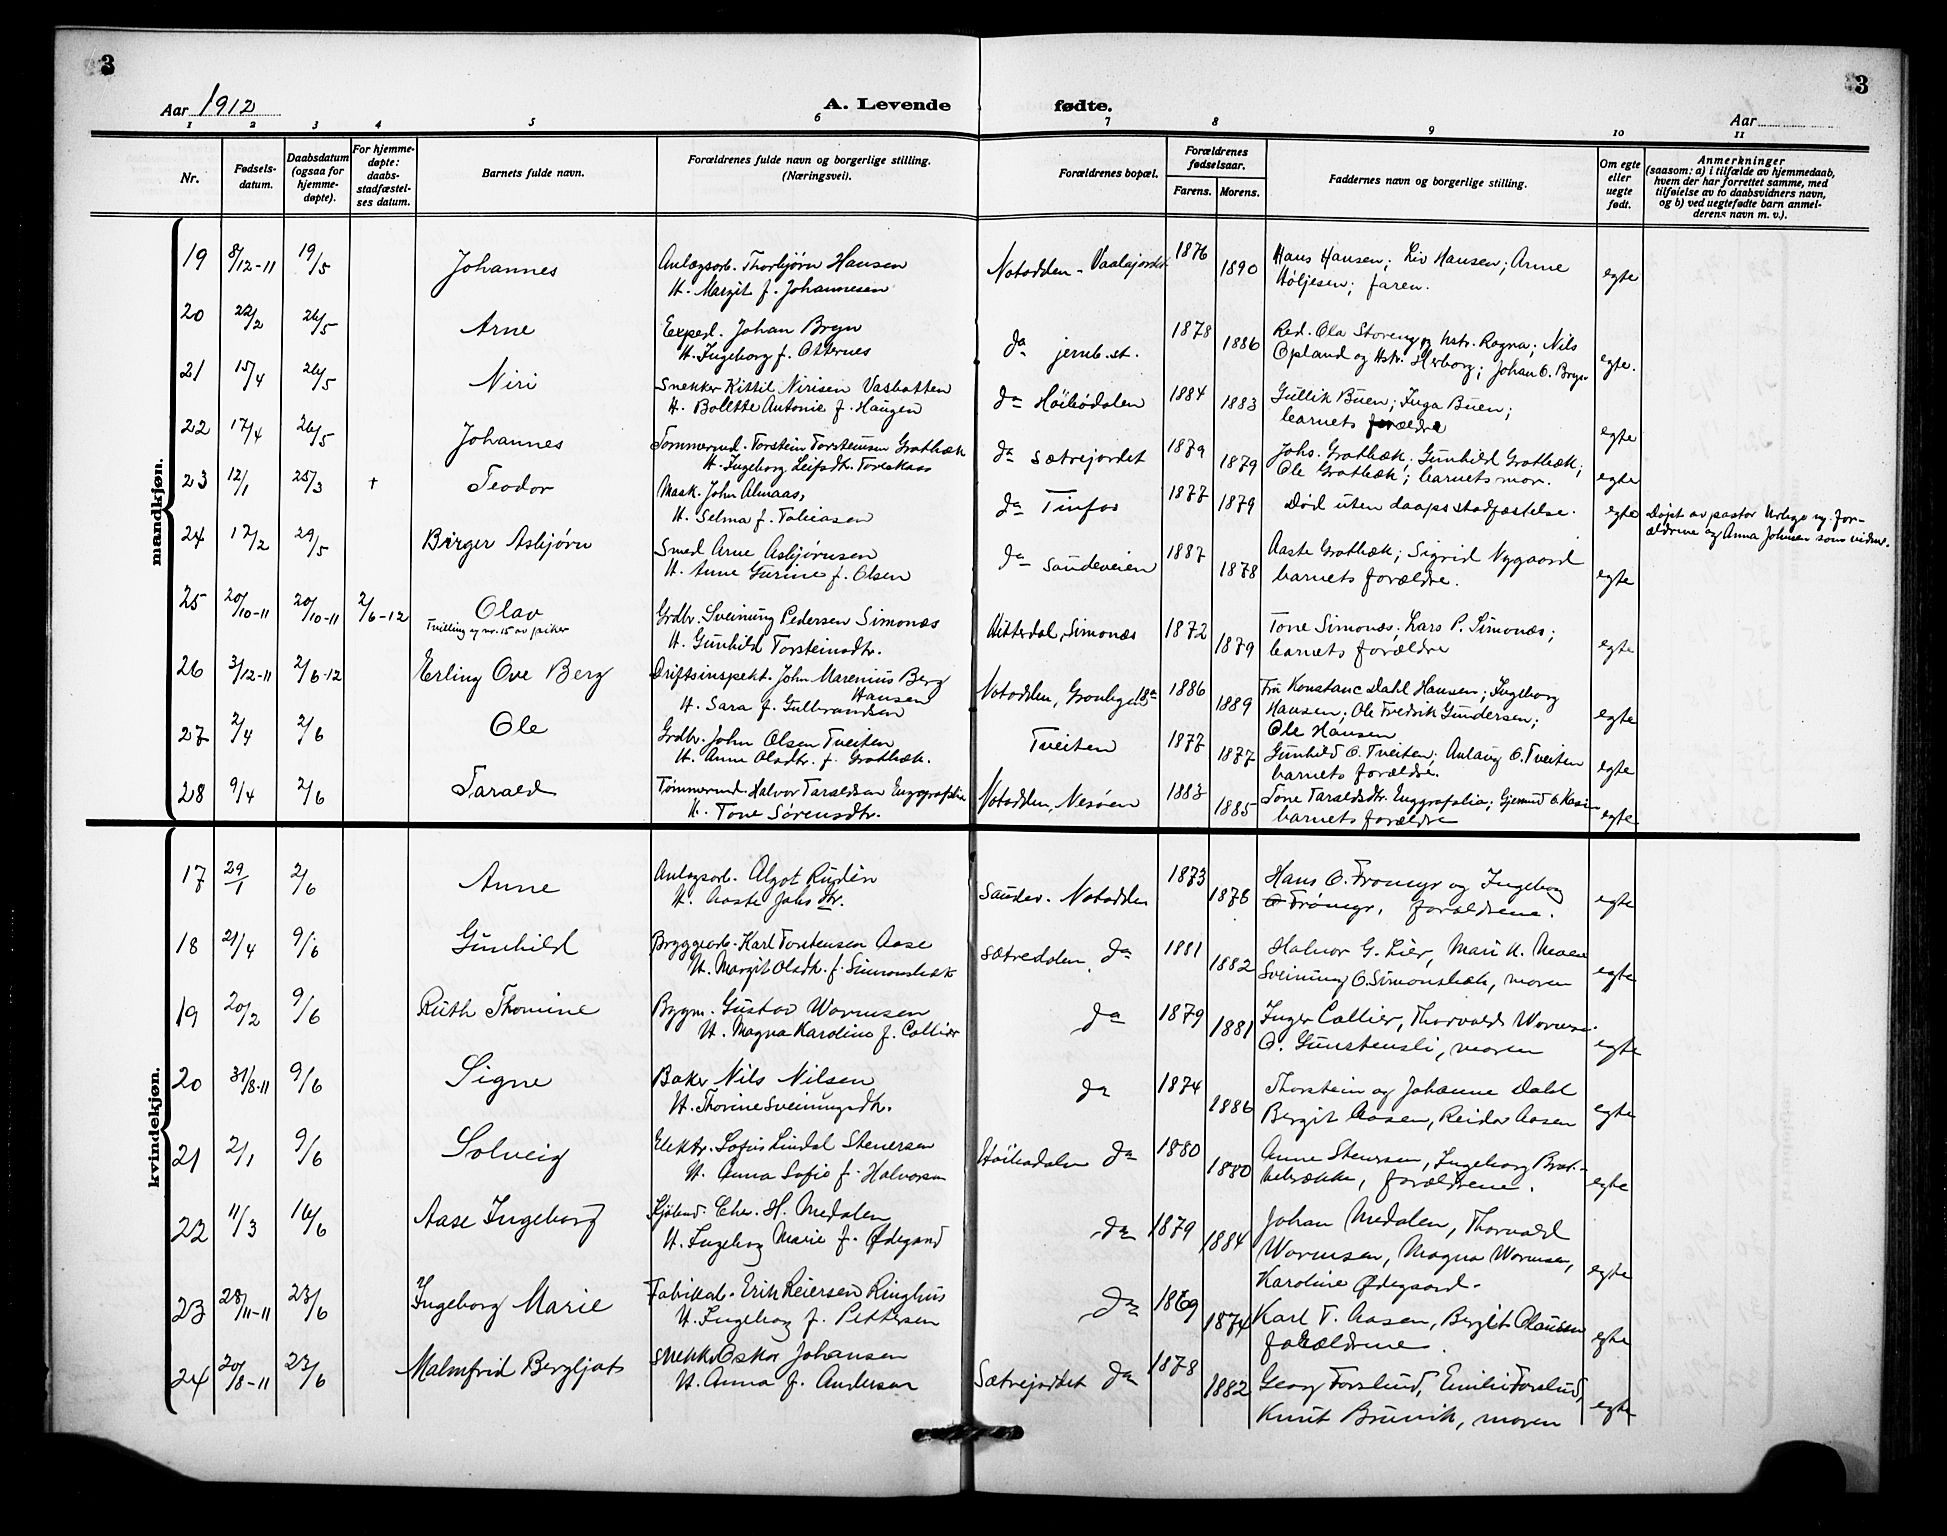 3
3
Aar 1912
A. Levende fødte.
Aar
1 2 3 4 5 6 7 8 9 10 11
Nr.
Fødsels-
datum.
Daabsdatum
(ogsaa for
hjemme-
døpte).
For hjemme-
døpte:
daabs-
stadfæstel-
ses datum.
Barnets fulde navn.
Forældrenes fulde navn og borgerlige stilling.
(Næringsvei).
Forældrenes bopæl.
Forældrenes
fødselsaar.
Farens. Morens.
Faddernes navn og borgerlige stilling.
Om egte
eller
uegte
født.
Anmerkninger
(saasom: a) i tilfælde av hjemmedaab,
hvem der har forrettet samme, med
tilføielse av to daabsvidners navn,
og b) ved uegtefødte barn anmel-
derens navn m. v.).
mandkjøn.
19 8/12-11 19/5 Johannes
Anlægsarb. Thorbjørn Hansen
H. Margit f. Johannesen
Notodden - Vaalajordet 1876 1890
Hans Hansen; Liv Hansen; Arne
Høljesen; faren.
egte
20 22/2 26/5 Arne
Exped. Johan Bryn
H. Ingeborg f. Otternes
da jernb.st. 1878 1886
Red. Ola Storeng og hstr. Ragna; Nils
Opland og Hstr. Herborg; Johan O. Bryn
egte.
21 15/4 26/5 Niri
Snekker Kittil Nirisen Vasbotten
H. Bolette Antonie f. Haugen
da Høibødalen 1884 1883
Gullik Buen; Inga Buen;
barnets forældre
egte
22 17/4 26/5 Johannes
Tømmermd. Torstein Torsteinsen Grotbæk
H. Ingeborg Leifsdtr. Toreskaas
da sætrejordet 1879 1879
Johs. Grotbæk; Gunhild Grotbæk;
Ole Grotbæk; barnets mor.
egte
23 12/1 25/3 + Teodor
Mask. John Almaas,
H. Selma f. Tobiasen
da Tinfos 1877 1879
Død uten daapsstadfæstelse.
egte
Døpt av pastor og for-
ældrene og Anna Johnsen som vidner.
24 17/2 29/5 Birger Asbjørn
Smed Arne Asbjørnsen
H. Anne Gurine f. Olsen
da sandeveien 1887 1878
Aaste Grotbæk; Sigrid Nygaard
barnets forældre.
egte
25 20/10-11 20/10-11 2/6-12 Olav
Tvilling og nr. 15 av piker
Grdbr. Sveinung Pedersen Simonæs
H. Gunhild Torsteinsdtr.
Hitterdal, Simonæs 1872 1879
Tone Simonæs; Lars P. Simonæs;
barnets forældre
egte
26 3/12-11 2/6-12 Erling Ove Berg
Driftsinspekt. John Marenius Berg
Hansen
H. Sara f. Gulbrandsen
Notodden, Grønbygd 18a 1886 1889
Fru Konstanc Dahl Hansen; Ingeborg
Hansen; Ole Fredrik Gundersen;
Ole Hansen
egte
27 2/4 2/6 Ole
Grdbr. John Olsen Tveiten
H. Anne Olsdtr. f. Grotbæk.
Tveiten 1877 1877
Gunhild O. Tveiten; Anlaug O. Tveiten
barnets forældre.
egte
28 9/4 2/6 Tarald
Tømmermd. Halvor Taraldsen Enggrafslia
H. Tone Sørensdtr.
Notodden, Nesøen 1883 1885
Tone Taraldsdtr. Enggrafslia; Gjermund O. Kasin
barnets forældre
egte
kvindekjøn.
17 29/1 2/6 Anne
Anlægsarb. Algot Rudén
H. Aaste Johsdtr.
Sandev. Notodden 1873 1875
Hans O. Tromyr og Ingeborg
O Trømyr, forældrene.
egte
18 21/4 9/6 Gunhild
Bryggearb. Karl Torstensen Aase
H. Margit Olsdtr. f. Simonsbæk
sætredalen, da 1881 1882
Halvor G. Lier, Mari H. Moen
Sveinung O. Simonsbæk, moren
egte
19 20/2 9/6 Ruth Thomine
Bygm. Gustav Wormsen
H. Magna Karoline f. Collier
da 1879 1881
Inger Collier, Thorvald Wormsen.
O. Gunstensli, moren
egte
20 31/8-11 9/6 Signe
Baker Nils Nilsen
H. Thorine Sveinungsdtr.
da 1874 1886
Thorstein og Johanne Dahl
Bergit Aasen, Reidar Aasen
egte
21 2/1 9/6 Solveig
Elektr. Sofus Lindal Stenersen
H. Anna Sofie f. Halvorsen
Høibødalen da 1880 1880
Anne Stenersen, Ingeborg
forældrene.
egte
22 11/3 16/6 Aase Ingeborg
Kjøbmd. Chr. H. Medalen
H. Ingeborg Marie f. Ødegaard
da 1879 1884
Johan Medalen, Thorvald
Wormsen, Magna Wormsen,
Karoline Ødegaard.
egte
23 28/11-11 23/6 Ingeborg Marie
Fabrikarb. Erik Reiersen Ringhus
H. Ingeborg f. Pettersen
da 1869 1874
Karl T. Aasen, Bergit Olausen
forældrene.
egte
24 20/8-11 23/6 Malmfrid Bergljot
Snekk. Oskar Johansen
H. Anna f. Andersen
Sætrejordet da 1878 1882
Georg Forslund, Emilie Forslund,
Knut Bruvik, moren
egte